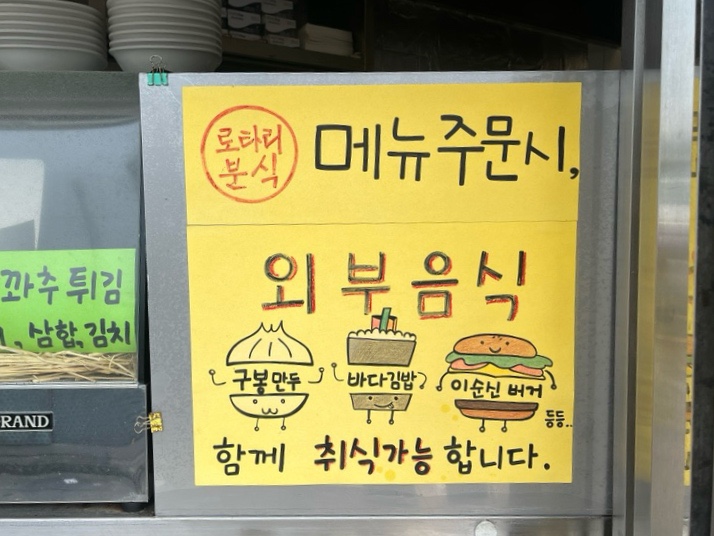 로타리
분식
메뉴주문시,
외부음식
구봉만두
바다김밥
이순신 버거
등등..
함께 취식가능 합니다.
꽈추 튀김
, 삼합,김치
RAND